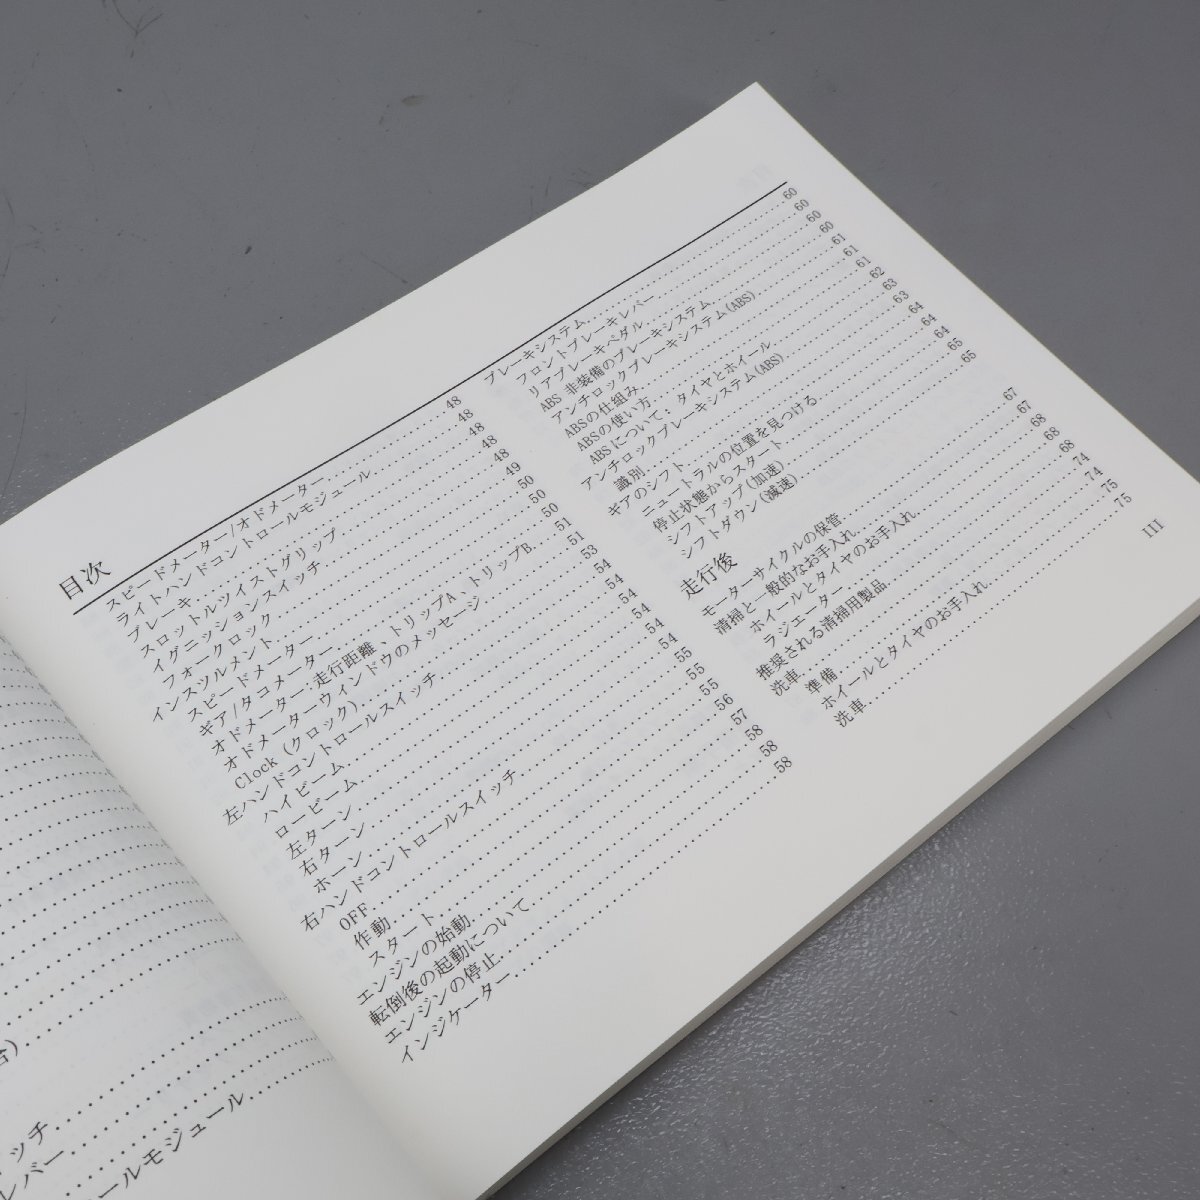 目次
スピードメーター/オドメーター 48
ライトハンドコントロールモジュール 48
ブレーキ 48
スロットルツイストグリップ 48
イグニッションスイッチ 48
フォークロック 49
インスツルメント 50
スピードメーター 50
ギア/タコメーター 50
オドメーター:走行距離、トリップA、トリップB 51
オドメーターウィンドウのメッセージ 51
Clock (クロック) 53
左ハンドコントロールスイッチ 54
ハイビーム 54
ロービーム 54
左ターン 54
右ターン 54
ホーン 54
右ハンドコントロールスイッチ 55
OFF 55
作動 55
スタート 56
エンジンの始動 57
転倒後の起動について 58
エンジンの停止 58
インジケーター 58
ブレーキシステム 60
フロントブレーキレバー 60
リアブレーキペダル 60
ABS 非装備のブレーキシステム 60
アンチロックブレーキシステム(ABS) 61
ABSの仕組み 61
ABSの使い方 61
ABSについて:タイヤとホイール 62
アンチロックブレーキシステム(ABS) 63
識別 63
ギアのシフト 64
ニュートラルの位置を見つける 64
停止状態からスタート 64
シフトアップ(加速) 65
シフトダウン(減速) 65
走行後
モーターサイクルの保管 67
清掃と一般的なお手入れ 67
ホイールとタイヤのお手入れ 68
ラジエーター 68
推奨される清掃用製品 68
洗車 74
準備 74
ホイールとタイヤのお手入れ 75
洗車 75
111
合)
ィッチ
レバー
ールモジュール